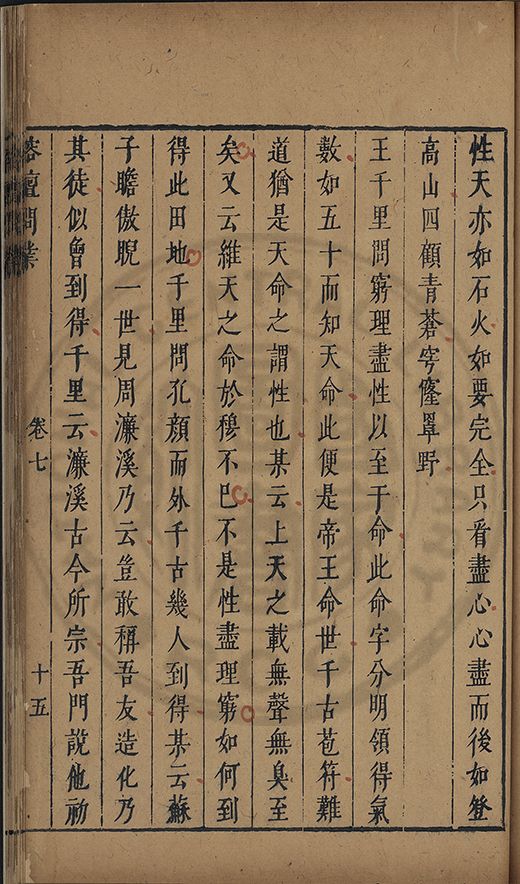 性天亦如石火如要完全只看盡心心盡而後如登
高山四顧青蒼穹窿罩野
王千里問窮理盡性以至于命此命字分明領得氣
數如五十而知天命此便是帝王命世千古苞符難
道猶是天命之謂性也某云上天之載無聲無臭至
矣又云維天之命於穆不巳不是性盡理窮如何到
得此田地千里問孔顏而外千古幾人到得某云蘇
子瞻傲睨一世見周濂溪乃云豈敢稱吾友造化乃
其徒似曾到得千里云濂溪古今所宗吾門說他初
榕壇問業
卷七
十五